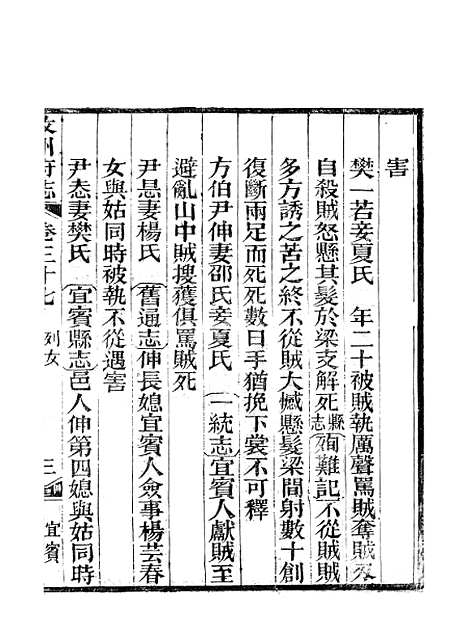 害
樊一若妾夏氏 年二十被賊執厲聲罵賊奪賊刃
自殺賊怒懸其髮於梁支解死縣志殉難記不從賊賊
多方誘之苦之終不從賊大憾懸髮梁間射數十創
復斷兩足而死死數日手猶挽下裳不可釋
方伯尹伸妻邵氏妾夏氏 一統志宜賓人獻賊至
避亂山中賊搜獲俱罵賊死
尹恳妻楊氏 舊通志伸長媳宜賓人僉事楊芸春
女與姑同時被執不從遇害
尹忞妻樊氏 宜賓縣志邑人伸第四媳與姑同時
叙州府志 卷三十七 列女 三 宜賓